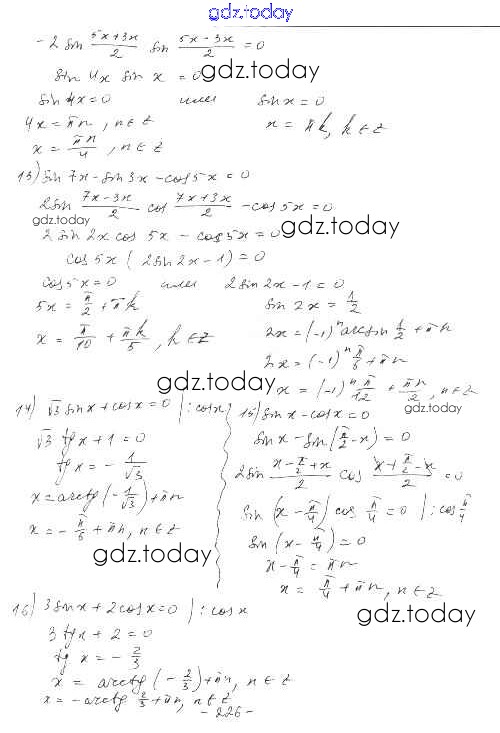 gdz.today
-2 sin (5x+3x)/2 sin (5x-3x)/2 = 0
sin 4x sin x = 0
gdz.today
sin 4x = 0 или sin x = 0
4x = πn, n∈Z
x = πk, k∈Z
x = πn/4, n∈Z
13) sin 7x - sin 3x - cos 5x = 0
2 sin (7x-3x)/2 cos (7x+3x)/2 - cos 5x = 0
gdz.today
2 sin 2x cos 5x - cos 5x = 0
gdz.today
cos 5x (2 sin 2x - 1) = 0
cos 5x = 0 или 2 sin 2x - 1 = 0
5x = π/2 + πk
sin 2x = 1/2
x = π/10 + πk/5, k∈Z
2x = (-1)ⁿ arcsin 1/2 + πn
2x = (-1)ⁿ π/6 + πn
x = (-1)ⁿ π/12 + πn/2, n∈Z
gdz.today
gdz.today
14) √3 sin x + cos x = 0 | : cos x
√3 tg x + 1 = 0
tg x = - 1/√3
x = arctg (- 1/√3) + πn
x = - π/6 + πn, n∈Z
gdz.today
15) sin x - cos x = 0
sin x - sin (π/2 - x) = 0
2 sin (x - π/2 + x)/2 cos (x + π/2 - x)/2 = 0
sin (x - π/4) cos π/4 = 0 | : cos π/4
sin (x - π/4) = 0
x - π/4 = πn
x = π/4 + πn, n∈Z
gdz.today
16) 3 sin x + 2 cos x = 0 | : cos x
3 tg x + 2 = 0
tg x = - 2/3
x = arctg (- 2/3) + πn, n∈Z
x = - arctg 2/3 + πn, n∈Z
- 226 -